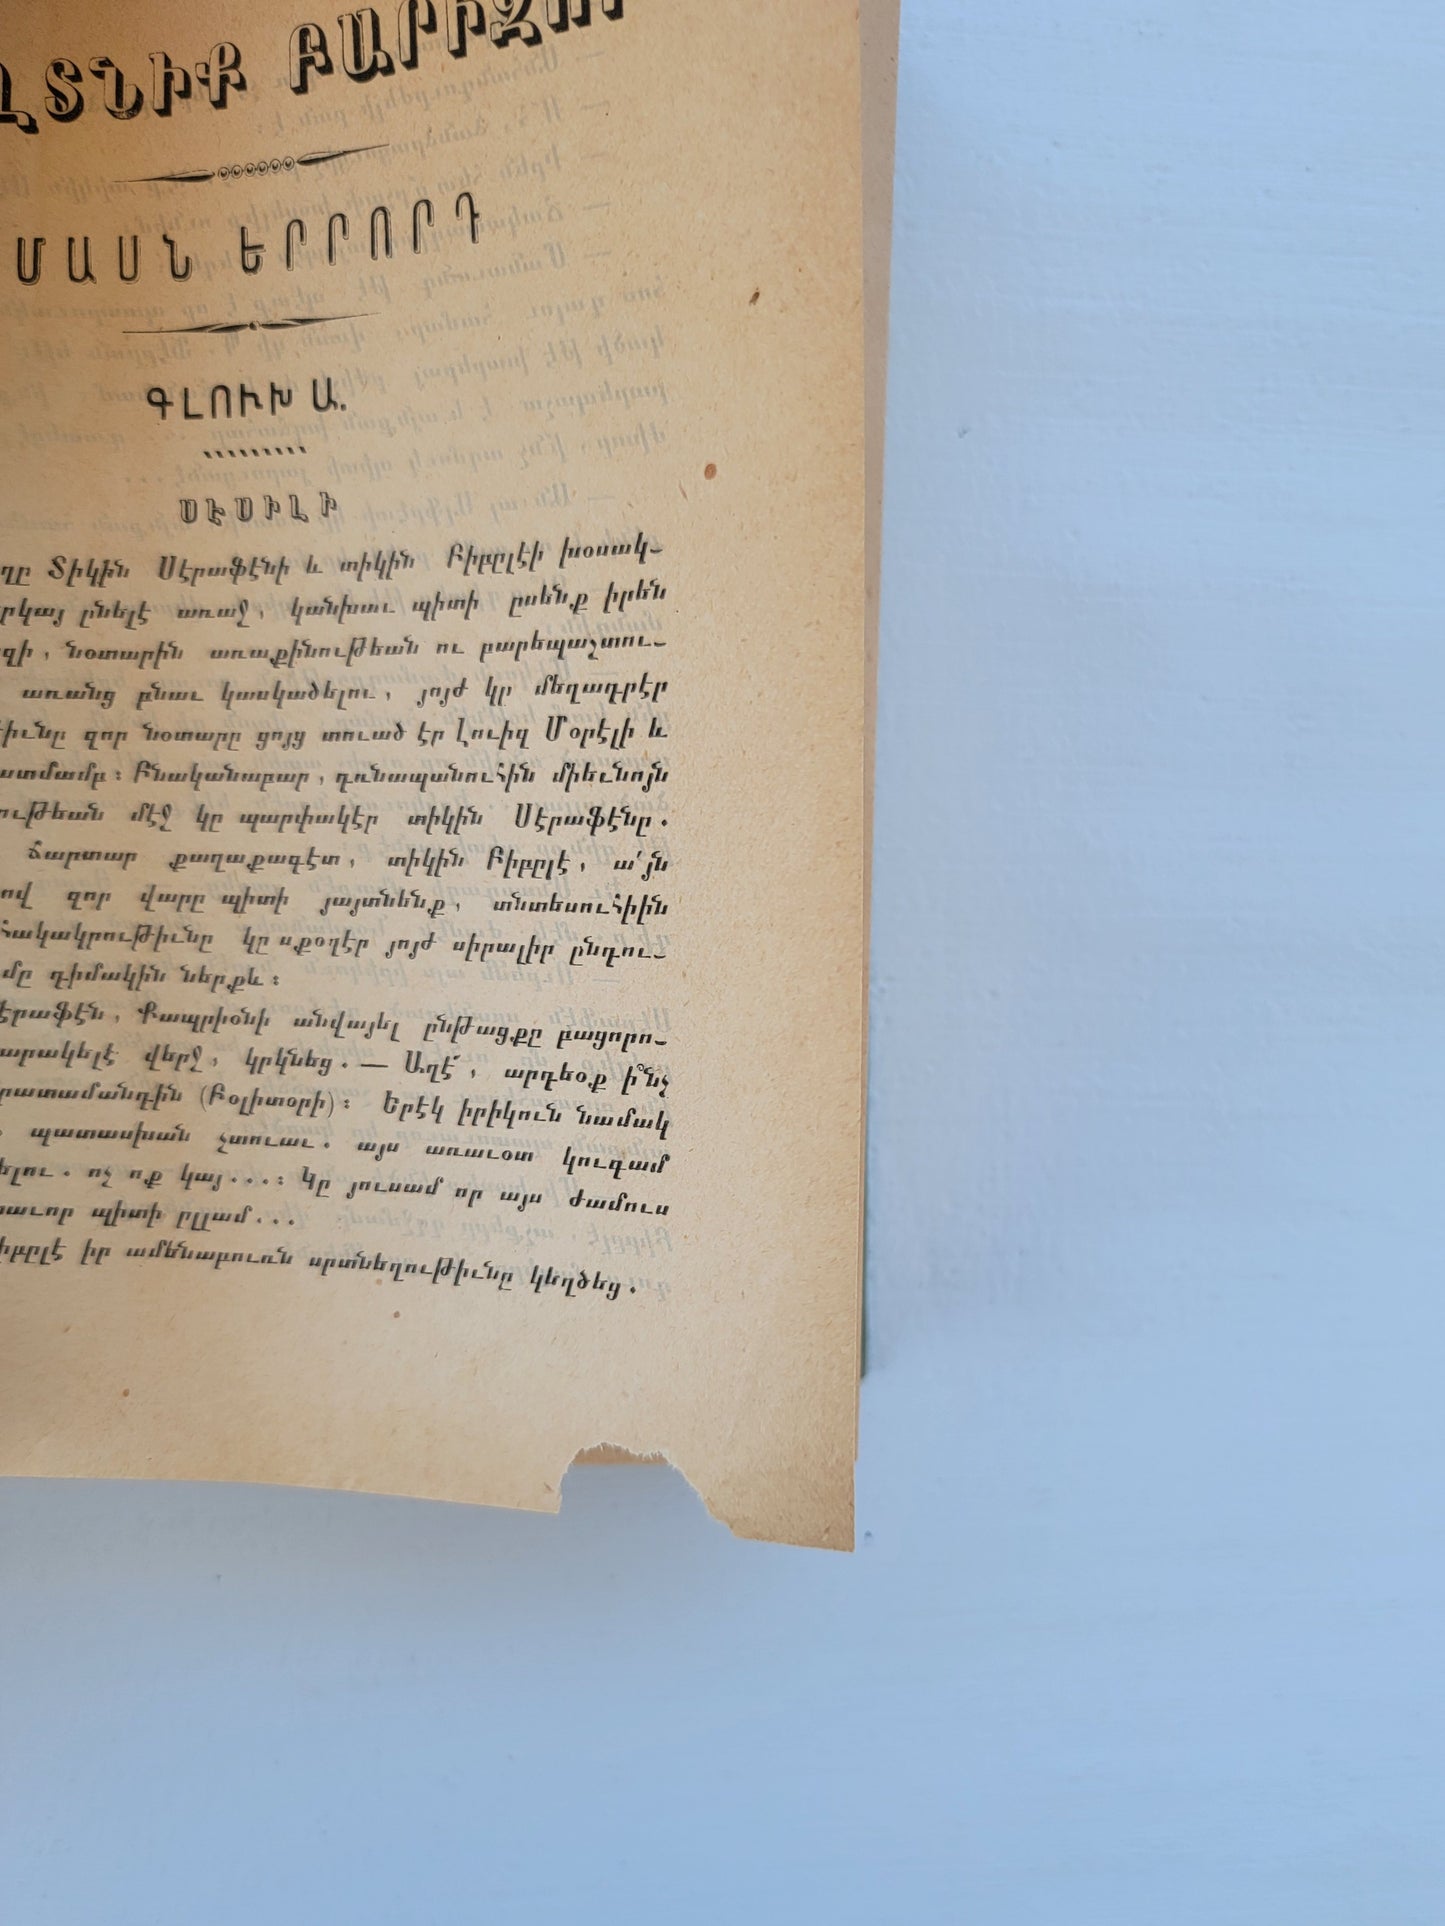 ՂՏՆԻՔ ԲԱՐԻԶՈՒ
ՄԱՍՆ ԵՐՐՈՐԴ
ԳԼՈՒԽ Ա.
ՍԷՍԻԼԻ
Տիկին Սէրաֆէնի և տիկին Բիբըլէի խօսակ-
ընելէ առաջ, կանխաւ պիտի ըսենք իրեն
նօտարին առաքինութեան ու բարեպաշտու-
առանց բնաւ կասկածելու, յոյժ կը մեղադրէր
զոր նօտարը ցոյց տուած էր Լուիզ Մօրէլի և
Բնականաբար, դռնապանուհին միեւնոյն
մէջ կը պարփակէր տիկին Սէրաֆէնը.
ճարտար քաղաքագէտ, տիկին Բիբըլէ, ա՛յն
զոր վարը պիտի յայտնենք, տնտեսուհիին
հակակրութիւնը կը սքօղէր յոյժ սիրալիր ընդու-
մը դիմակին ներքև:
Քապրիօնի անվայել ընթացքը բացորո-
վերջ, կրկնեց. — Աղէ՜, արդեօք ի՞նչ
(Բօլիտօրի): Երէկ իրիկուն նամակ
պատասխան չտուաւ. այս առաւօտ կուգամ
ոչ ոք կայ...: Կը յուսամ որ այս ժամուս
պիտի ըլլամ...
իր ամենաբուռն սրտնեղութիւնը կեղծեց.